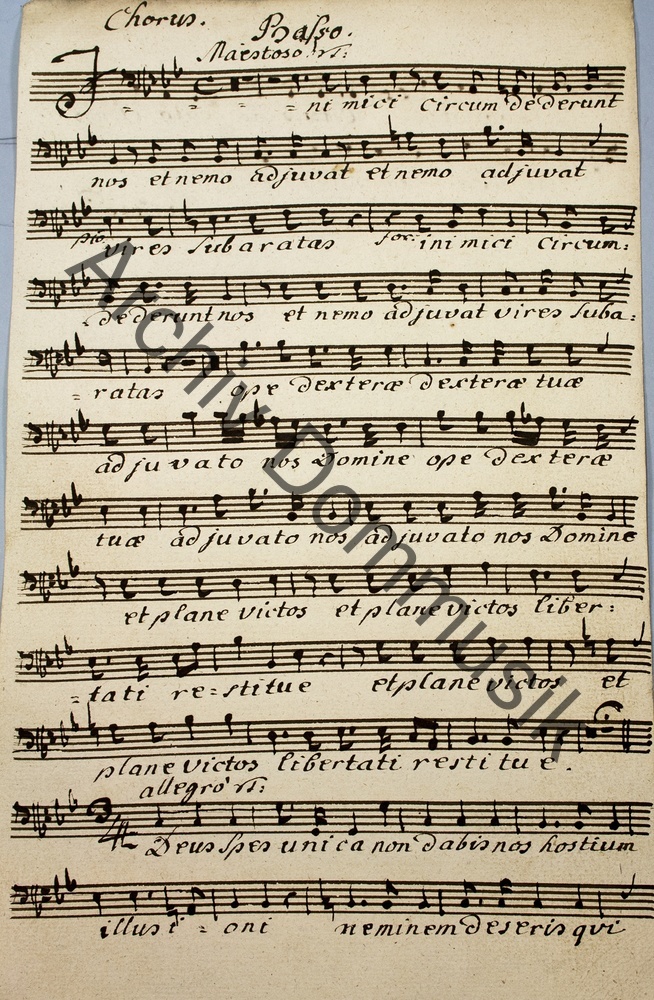 Chorus. Basso.
Maestoso
Inimici circumdederunt
nos et nemo adjuvat et nemo adjuvat
pio: vires subaratas for: inimici circum:
dederunt nos et nemo adjuvat vires suba:
= ratas ope dexteræ dexteræ tuæ
adjuvato nos Domine ope dexteræ
tuæ adjuvato nos adjuvato nos Domine
et plane victos et plane victos liber:
= tati re=stitue et plane victos et
plane victos libertati restitue.
allegro
3/4 Deus spes unica non dabis nos hostium
illusi = oni neminem deseris qui
Archiv Dommusik